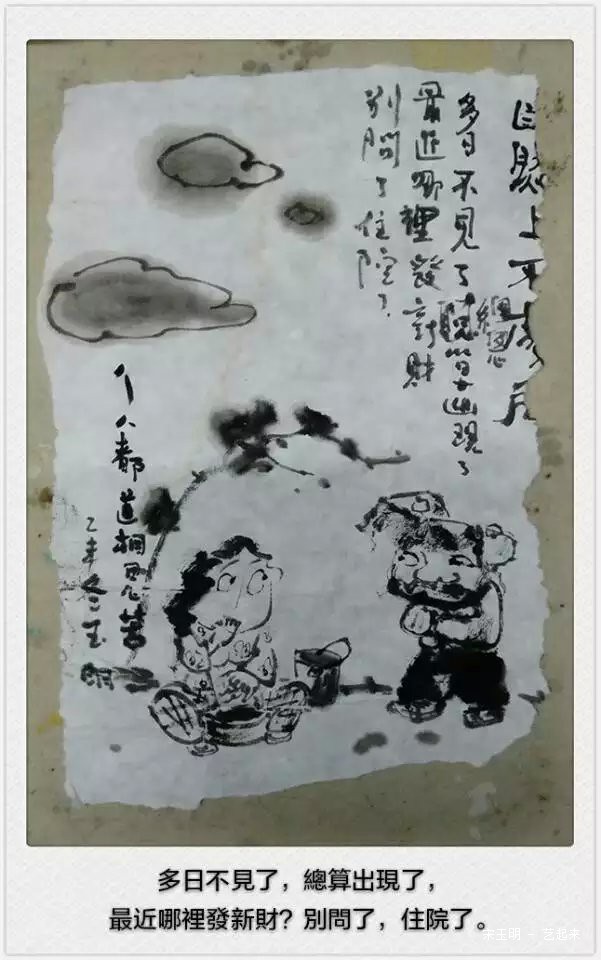 多日不見了總算出現了
最近哪裡發新財
別問了住院了
个人都道相見苦
乙未冬玉明
多日不見了，總算出現了，
最近哪裡發新財？別問了，住院了。